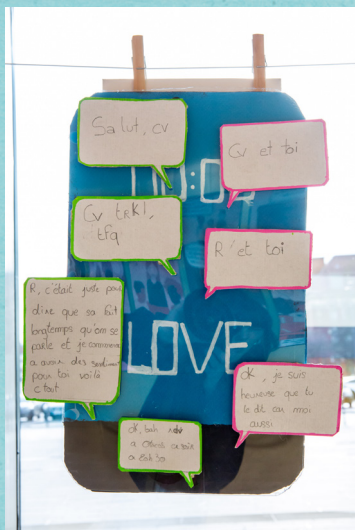 Salut, cv
Cv et toi
Cv trkl,
tfq
R et toi
R, c'était juste pour
dire que sa fait
longtemps qu'on se
parle et je commence
a avoir des sentiment
pour toi voilà
c tout
OK, je suis
heureuse que tu
le dit car moi
aussi
ok, bah rdv
a ce soir
a 20h30
LOVE